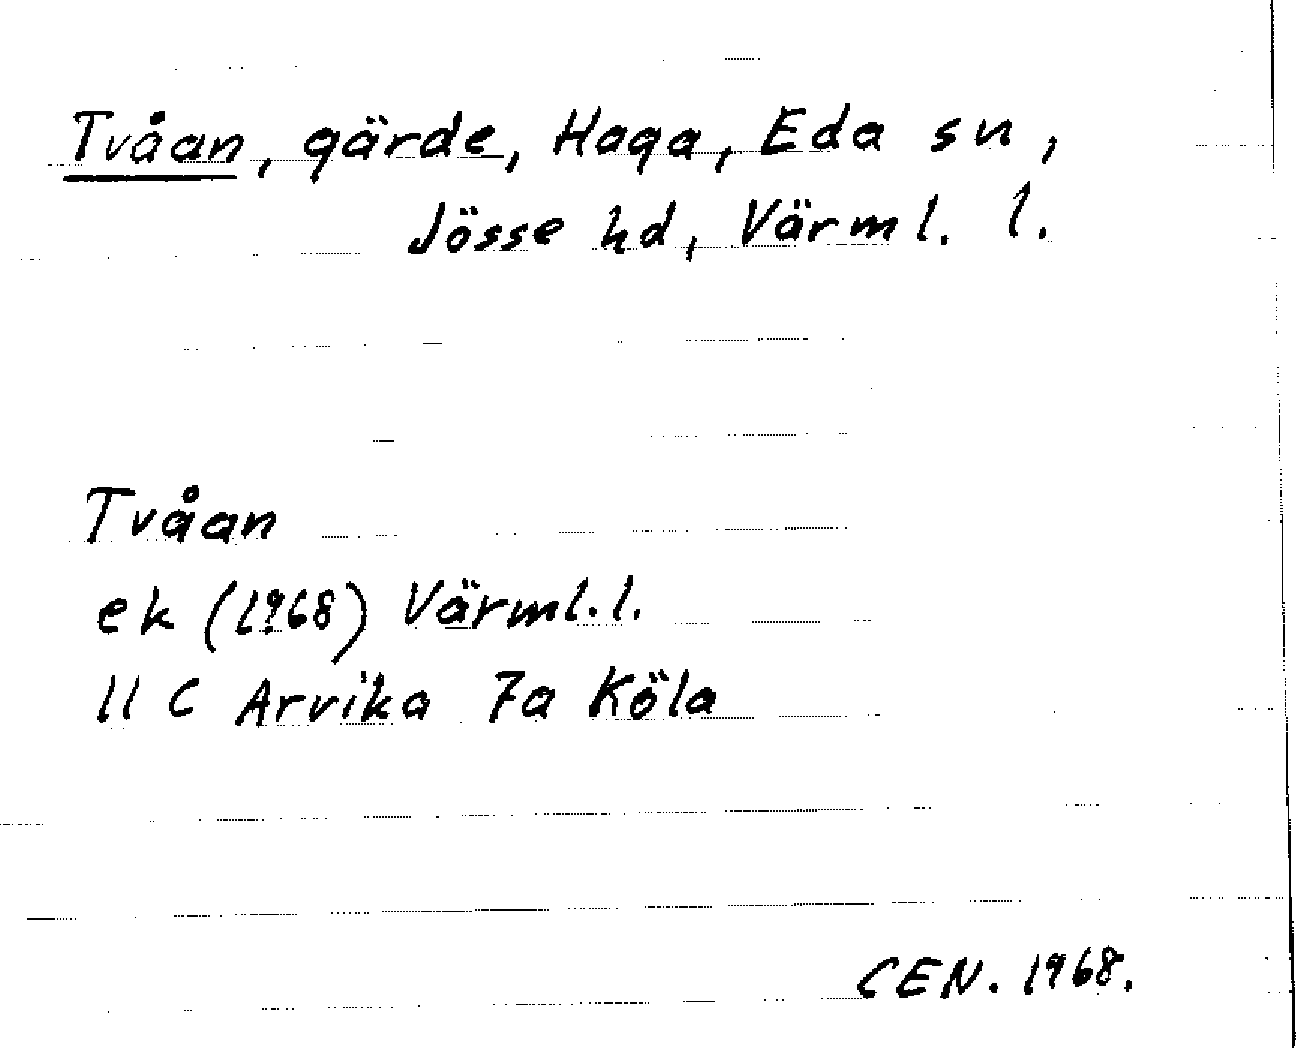 Tvåan, gärde, Haga, Eda sn,
Jösse hd, Värml. l.
Tvåan
ek (1968) Värml. l.
11 C Arvika 7a Köla
CEN. 1968.